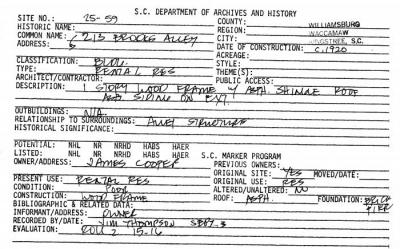 S.C. DEPARTMENT OF ARCHIVES AND HISTORY
SITE NO.: 25-59 COUNTY: WILLIAMSBURG
HISTORIC NAME: REGION: WACCAMAW
COMMON NAME: 213 BROOKS ALLEY CITY: KINGSTREE, S.C.
ADDRESS: DATE OF CONSTRUCTION: C.1920
ACREAGE:
CLASSIFICATION: BLDG. STYLE:
TYPE: RENTAL RES THEME(S):
ARCHITECT/CONTRACTOR: PUBLIC ACCESS:
DESCRIPTION: 1 STORY WOOD FRAME W/ ASPH. SHINGLE ROOF
ASPH. SIDING ON EXT.
OUTBUILDINGS: N/A
RELATIONSHIP TO SURROUNDINGS: ALLEY STRUCTURE
HISTORICAL SIGNIFICANCE:
POTENTIAL: NHL NR NRHD HABS HAER
LISTED: NHL NR NRHD HABS HAER S.C. MARKER PROGRAM
OWNER/ADDRESS: JAMES COOPER PREVIOUS OWNERS:
ORIGINAL SITE: YES MOVED/DATE:
PRESENT USE: RENTAL RES ORIGINAL USE: RES
CONDITION: POOR ALTERED/UNALTERED: NO
CONSTRUCTION: WOOD FRAME ROOF: ASPH. FOUNDATION: BRICK PIER
BIBLIOGRAPHIC & RELATED DATA:
INFORMANT/ADDRESS: OWNER
RECORDED BY/DATE: JIM THOMPSON SEPT.
EVALUATION: ROLL 2 15-16